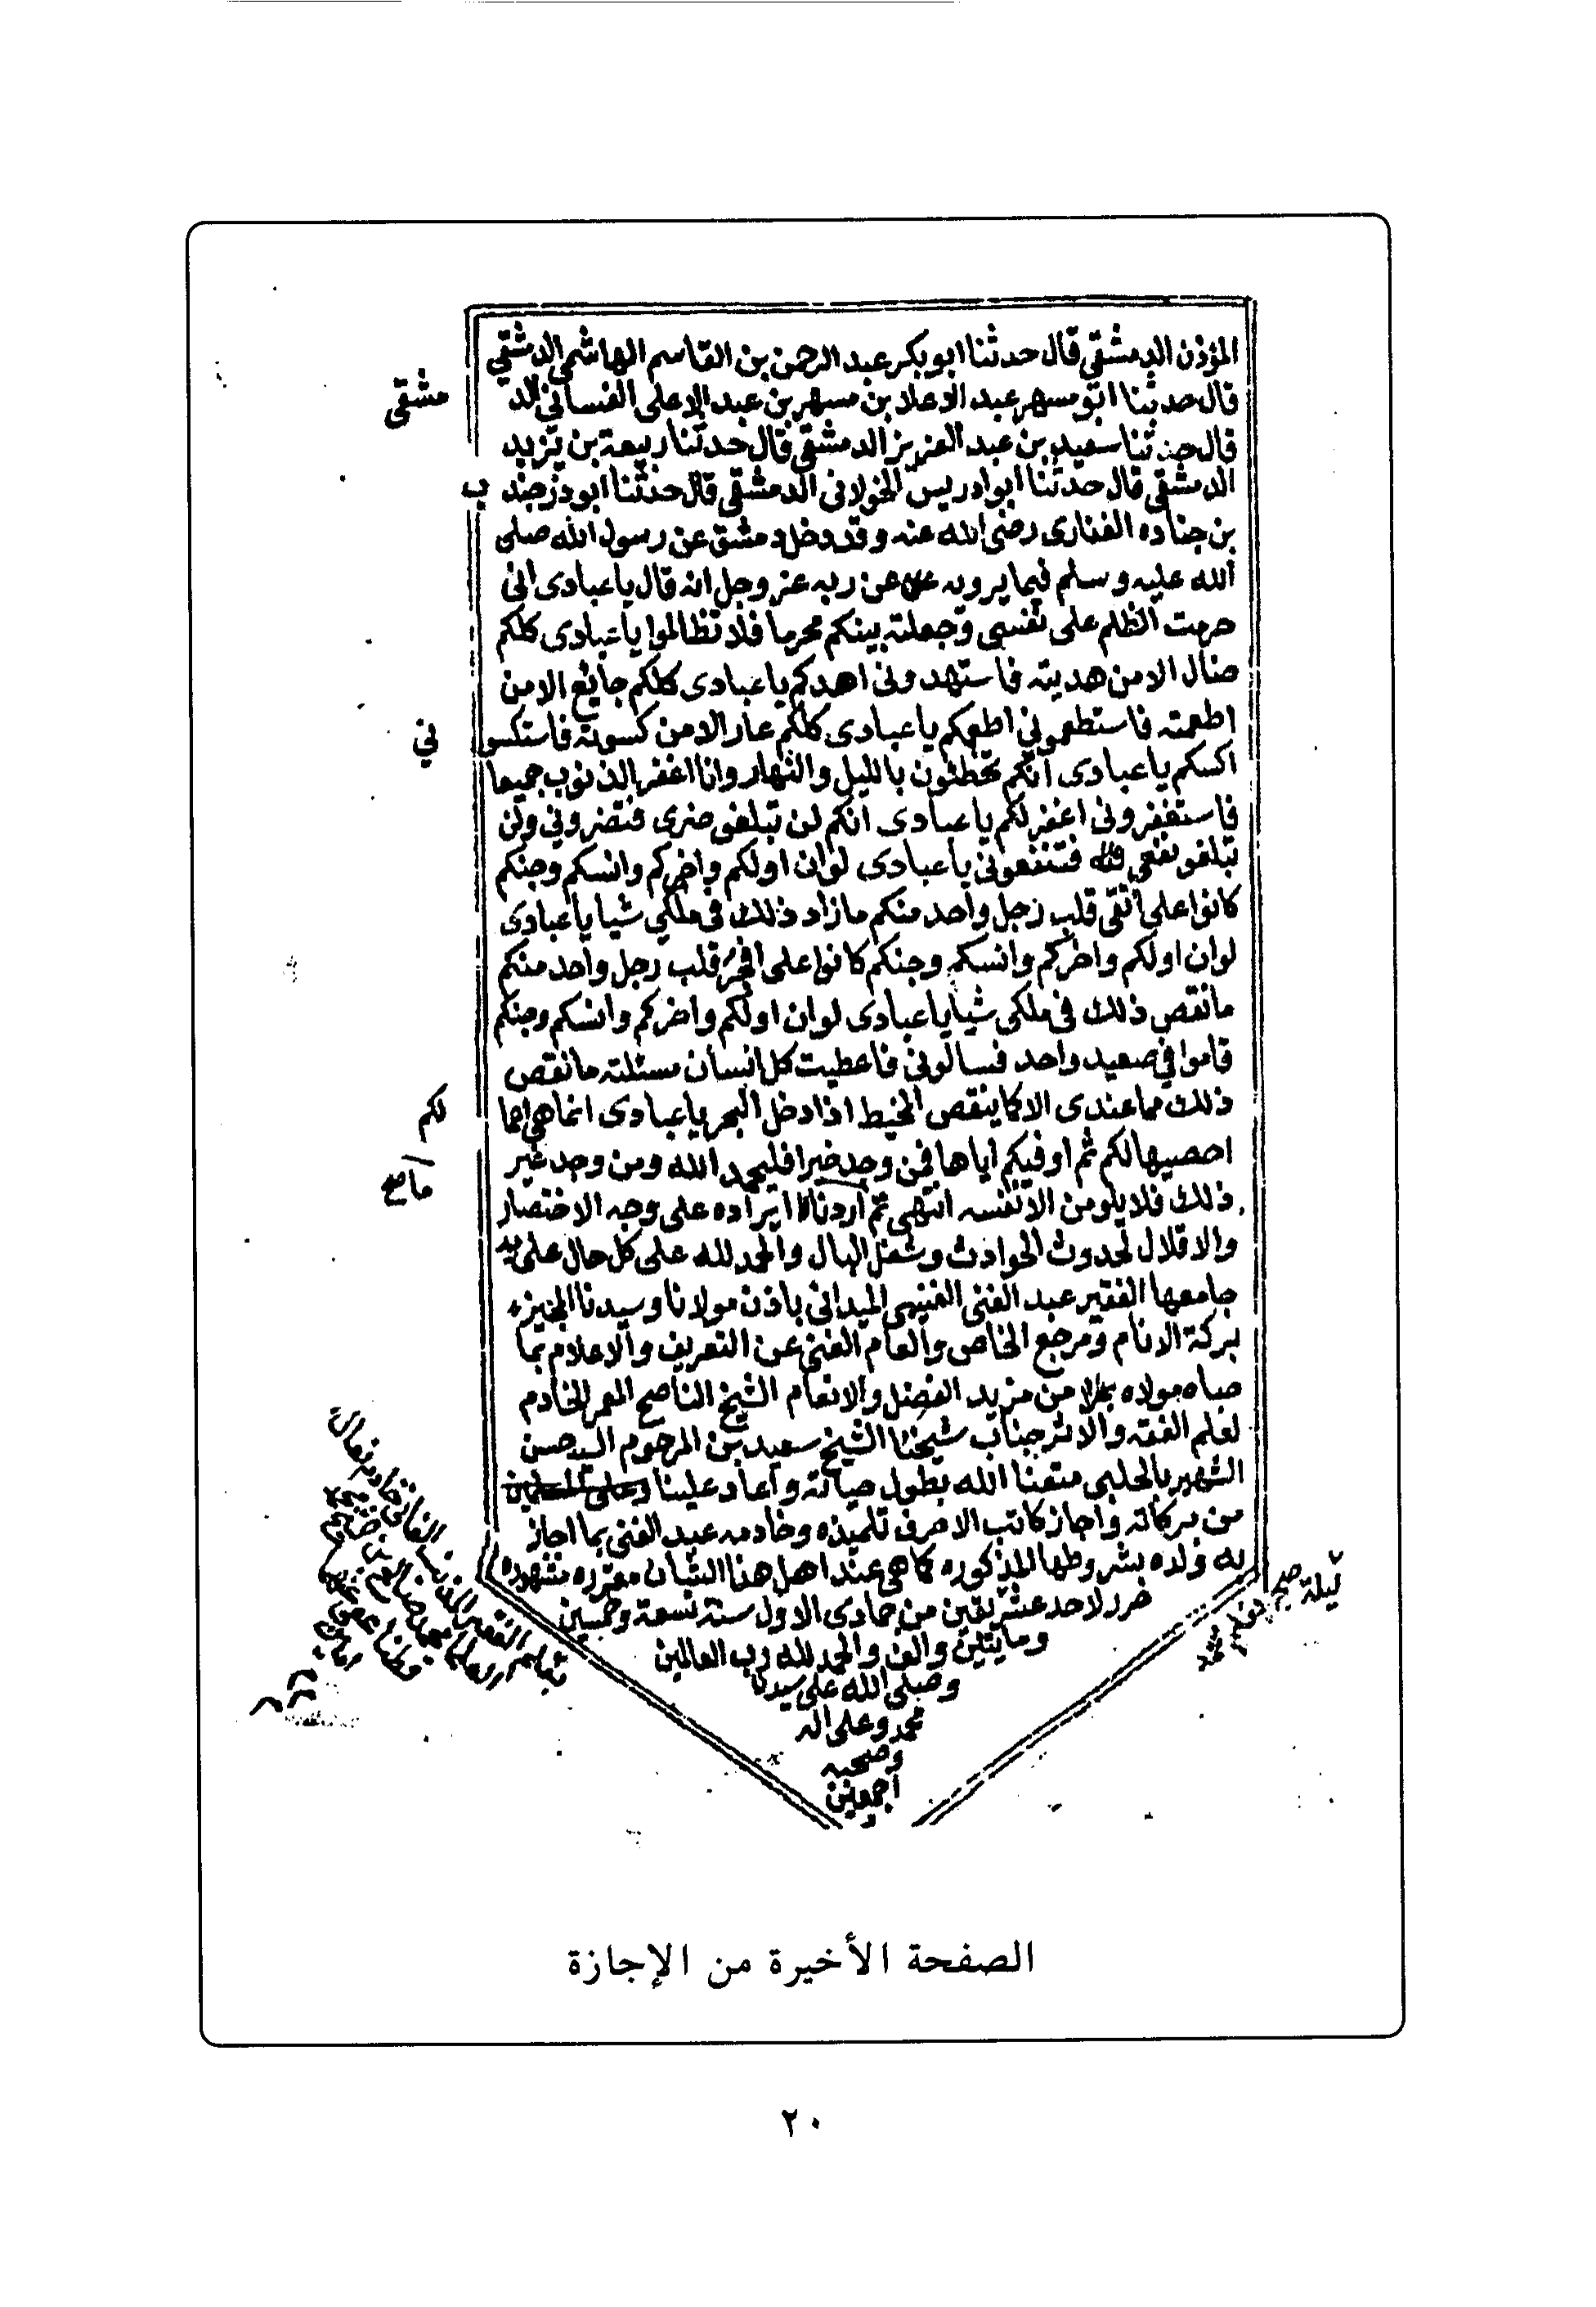 المؤذن الدمشقي قال حدثنا ابو بكر عبد الرحمن بن القاسم الهاشمي الدمشقي
قال حدثنا ابو مسهر عبد الاعلا بن مسهر بن عبد الاعلى الغساني الد
مشقي
قال حدثنا سعيد بن عبد العزيز الدمشقي قال حدثنا ربيعة بن يزيد
الدمشقي قال حدثنا ابو ادريس الخولاني الدمشقي قال حدثنا ابو ذر جند ب
بن جناده الغفاري رضي الله عنه وقد دخل دمشق عن رسول الله صلى
الله عليه وسلم فيما يرويه عن ربه عز وجل انه قال يا عبادي اني
حرمت الظلم على نفسي وجعلته بينكم محرما فلا تظالموا يا عبادي كلكم
ضال الا من هديته فاستهدوني اهدكم يا عبادي كلكم جايع الا من
اطعمته فاستطعموني اطعمكم يا عبادي كلكم عار الا من كسوته فاستكسو
ني
اكسكم يا عبادي انكم تخطئون بالليل والنهار وانا اغفر الذنوب جميعا
فاستغفروني اغفر لكم يا عبادي انكم لن تبلغو ضري فتضروني ولن
تبلغو نفعي فتنفعوني يا عبادي لو ان اولكم واخركم وانسكم وجنكم
كانوا على اتقى قلب رجل واحد منكم ما زاد ذلك في ملكي شيا يا عبادي
لو ان اولكم واخركم وانسكم وجنكم كانوا على افجر قلب رجل واحد منكم
ما نقص ذلك في ملكي شيا يا عبادي لو ان اولكم واخركم وانسكم وجنكم
قاموا في صعيد واحد فسالوني فاعطيت كل انسان مسئلته ما نقص
ذلك مما عندي الا كما ينقص المخيط اذا دخل البحر يا عبادي انما هي اعما
لكم
احصيها لكم ثم اوفيكم اياها فمن وجد خيرا فليحمد الله ومن وجد غير
ذلك فلا يلومن الا نفسه انتهى تم اردنا ايراده على وجه الاختصار
ما صح
والاقلال لحدوث الحوادث وشغل البال والحمد لله على كل حال على يد
جامعها الفقير عبد الغني الغنيمي الميداني باذن مولانا وسيدنا المجيز
بركة الانام ومرجع الخاص والعام الغني عن التعريف والاعلام بما
حباه مولاه من مزيد الفضل والانعام الشيخ الناصح المعمر الخادم
لعلم الفقه والاثر جناب شيخنا الشيخ سعيد بن المرحوم السيد حسن
الشهير بالحلبي متعنا الله بطول حياته واعاد علينا
من بركاته واجاز كاتب الاحرف تلميذه وخادمه عبد الغني بما اجاز
به ولده بشروطها المذكوره كما هي عند اهل هذا الشان مقرره مشهوره
حرر لاحد عشر بقين من جمادى الاول سنة تسعة وخمسين
ومايتين والف والحمد لله رب العالمين
وصلى الله على سيدنا
محمد وعلى اله
وصحبه
اجمعين
الصفحة الأخيرة من الإجازة
٢٠